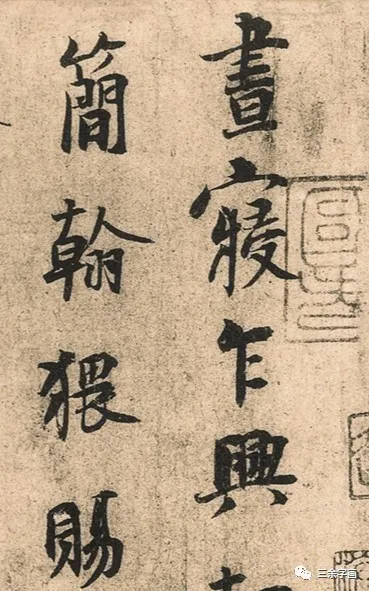 晝寢乍興
簡翰猥賜
三余字画